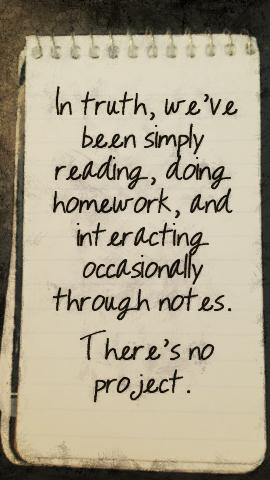 In truth, we've
been simply
reading, doing
homework, and
interacting
occasionally
through notes.
There's no
project.